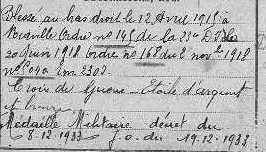 Blessé au bas droit le 12 Avril 1915 à
Ordre n° 145 de la 73e D.I. du
20 Juin 1918 Ordre n° 168 du 2 nov. 1918
n°
Croix de Guerre - Etoile d'argent
et bronze
Médaille Militaire décret du
8.12.1933 J.O. du 19.12.1933